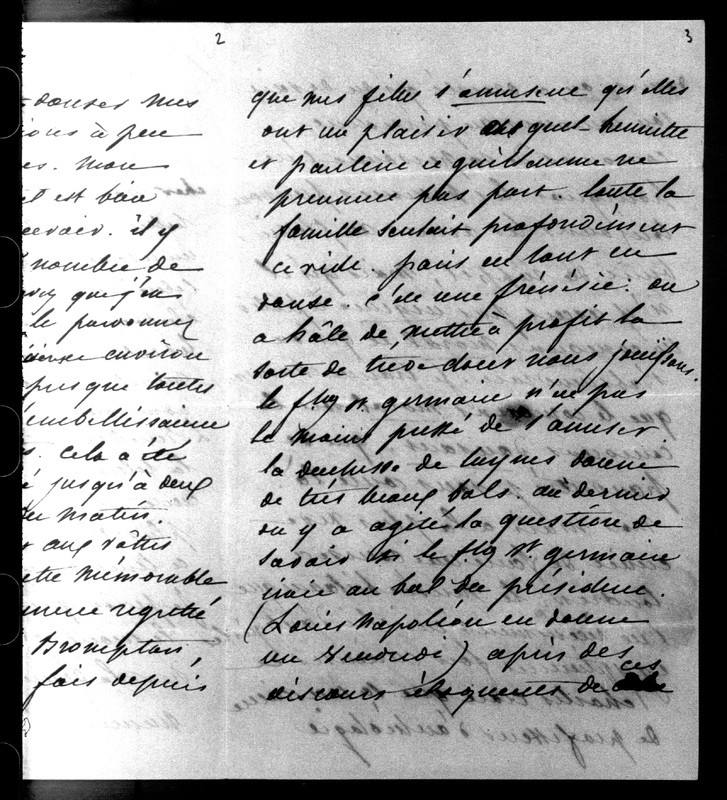 2
danser mes
à peu
es. mon
il est bien
cevoir. il y
nombre de
que j'en
le pardonner
environ
presque toutes
embellissaient
s. cela a été
é jusqu'à deux
du matin.
aux vôtres
cette mémorable
regretté
Brompton,
fois depuis
3
que mes filles s'amusent qu'elles
ont un plaisir quel- henriette
et pauline et guillaume ne
prennent pas part. toute la
famille sentait profondément
ce vide. paris en tout en
danse. c'est une frénésie. on
a hâte de mettre à profit la
sorte de trève dont nous jouissons.
le fbg st. germain n'est pas
le moins pressé de s'amuser
la duchesse de luynes donne
de très beaux bals. au dernier
on y a agité la question de
savoir si le fbg st germain
irait au bal du président.
(Louis Napoléon en donne
un Vendredi) après des
discours éloquents de ces